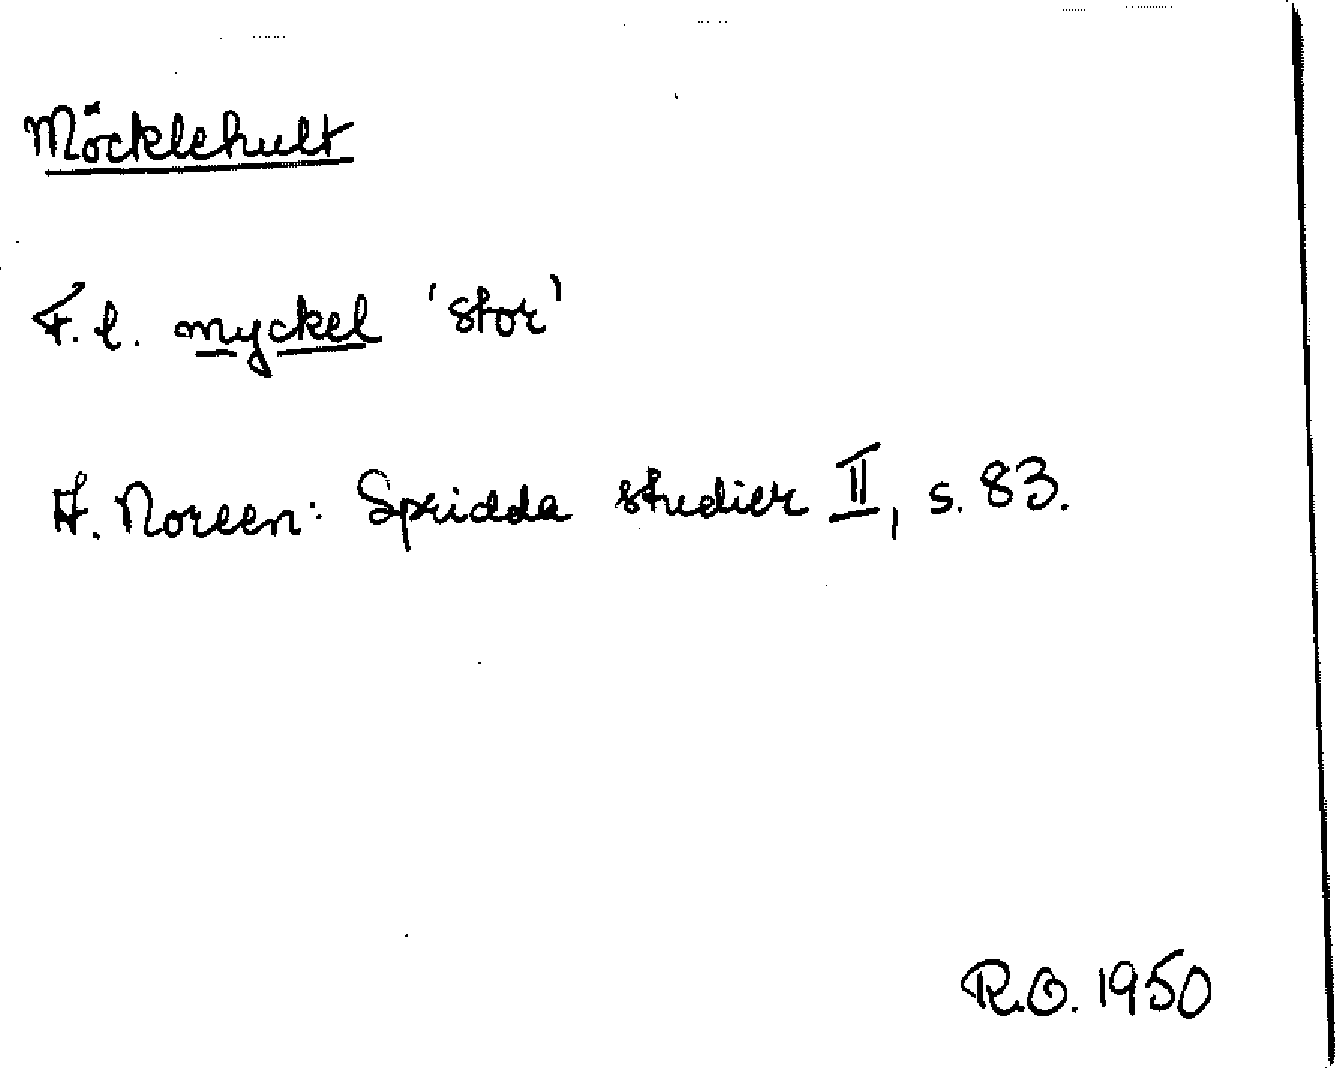 Möcklehult
F. l. myckel 'stor'
A. Noreen: Spridda studier II, s. 83.
R.O. 1950